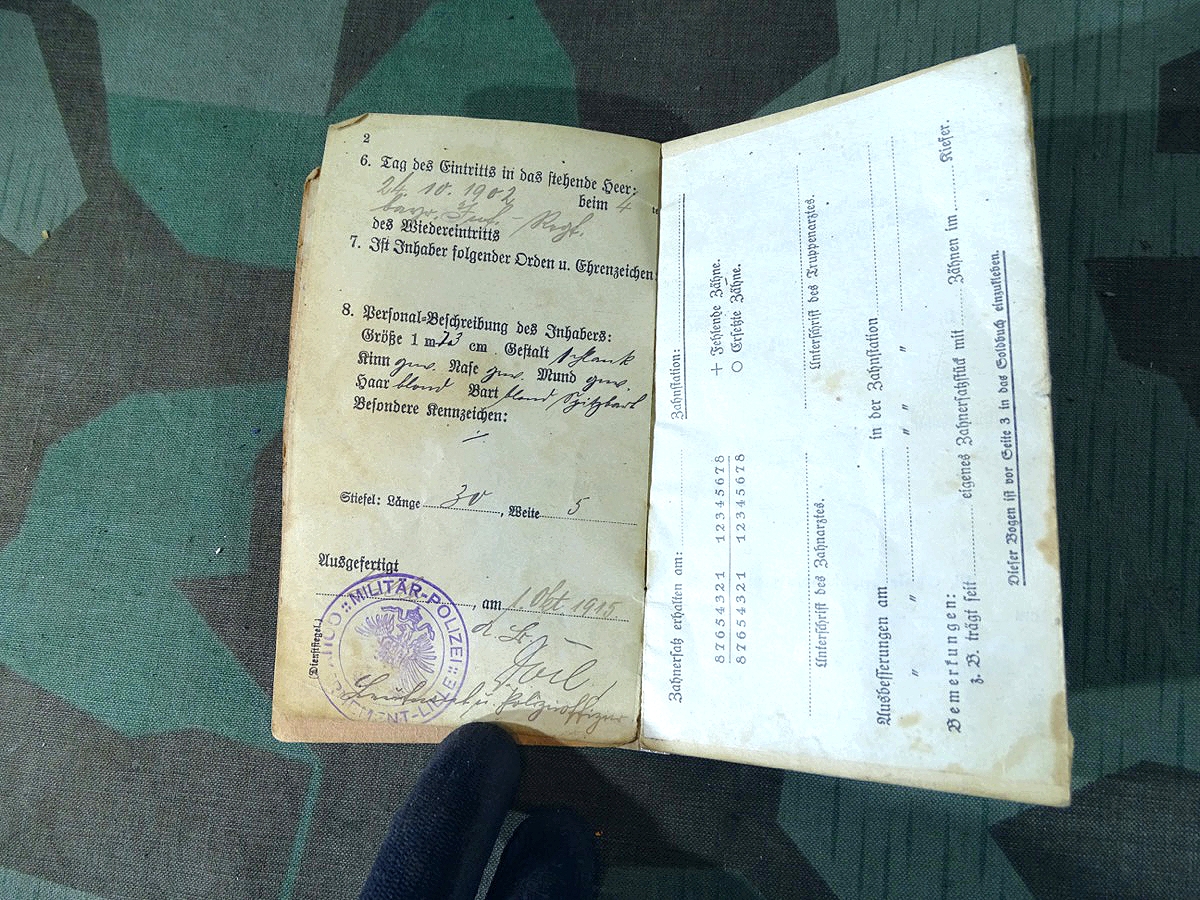 2
6. Tag des Eintritts in das stehende Heer:
24. 10. 1902 beim 4 te
bayr. Inf.-Regt.
des Wiedereintritts
7. Ist Inhaber folgender Orden u. Ehrenzeichen:
8. Personal-Beschreibung des Inhabers:
Größe 1 m 73 cm Gestalt schlank
Kinn gew. Nase gew. Mund gew.
Haar blond Bart blond Spitzbart
Besondere Kennzeichen:
Stiefel: Länge 30, Weite 5
Ausgefertigt
, am 1. Okt. 1915
(Dienstsiegel.)
MILITÄR-POLIZEI
MENT-LILLE
Leutnant u. Polizeioffizier
Zahnersatz erhalten am: Zahnstation:
87654321 12345678 + Fehlende Zähne.
87654321 12345678 ○ Ersetzte Zähne.
Unterschrift des Zahnarztes. Unterschrift des Truppenarztes.
Ausbesserungen am in der Zahnstation
" " " "
Bemerkungen:
z. B. trägt seit eigenes Zahnersatzstück mit Zähnen im Kiefer.
Dieser Bogen ist vor Seite 3 in das Soldbuch einzukleben.